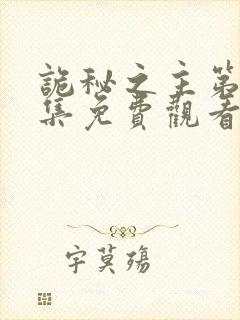 詭秘之主第
集免費觀看
字莫殤